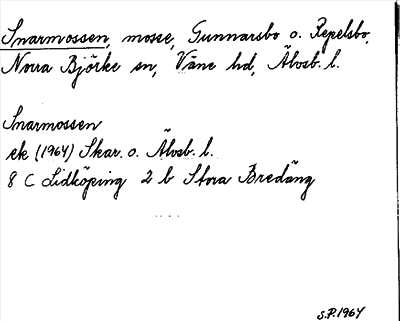 Snarmossen, mosse, Gunnarsbo o. Repelsbo,
Norra Björke sn, Väne hd, Älvsb. l.
Snarmossen
ek (1964) Skar. o. Älvsb. l.
8 C Lidköping 2 b Stora Bredäng
S.P. 1964